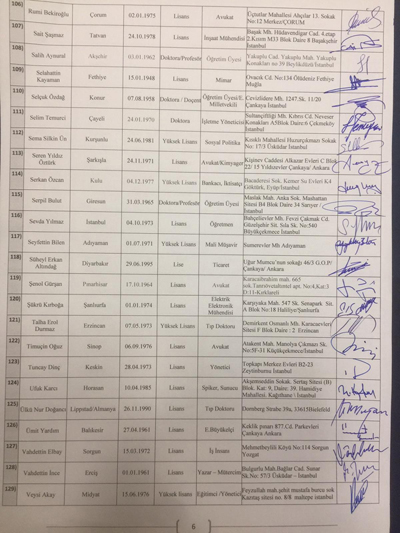 106) Rumi Bekiroğlu Çorum 02.01.1975 Lisans Avukat Üçtutlar Mahallesi Akçılar 13. Sokak
No:12 Merkez/ÇORUM
107) Sait Şaşmaz Tatvan 24.10.1978 Lisans İnşaat Mühendisi Başak Mh. Hüdavendigar Cad. 4.etap
2.Kısım M33 Blok Daire 8 Başakşehir
İstanbul
108) Salih Aynural 03.01.1962 Doktora/Profesör Öğretim Üyesi Yakuplu Cad. Yakuplu Mah. Yakuplu
Konakları no 39 Beylikdüzü/İstanbul
109) Selahattin
Kayaman Fethiye 15.01.1948 Lisans Mimar Ovacık Cd. No:134 Ölüdeniz Fethiye
Muğla
110) Selçuk Özdağ 07.08.1958 Doktora / Doçent Öğretim Üyesi/E.
Milletvekili Cevizlidere Mh. 1247.Sk. 11/20
Çankaya İstanbul
111) Selim Temurci Çayeli 24.01.1970 Doktora İşletme Yöneticisi Sultançiftliği Mh. Kıbrıs Cd. Neveser
Konakları A5Blok Daire:6 Çekmeköy
İstanbul
112) Sema Silkin Ün Kurşunlu 24.06.1981 Yüksek Lisans Sosyal Politika Kısıklı Mahallesi Huzurçıkmazı Sokak
No: 17/3 Üsküdar İstanbul
113) Seren Yıldız
Öztürk Şarkışla 24.11.1971 Lisans Avukat/Kimyager Kişinev Caddesi Alkazar Evleri C Blok
22/ 15 Yıldızevler Çankaya/ Ankara
114) Serkan Özcan Kulu 04.12.1977 Yüksek Lisans Bankacı, İktisatçı Bacaderesi Sok. Kemer Su Evleri K4
Göktürk, Eyüp/İstanbul
115) Serpil Bulut Giresun 31.03.1965 Doktora/Profesör Öğretim Üyesi Maslak Mah. Anka Sok. Mashattan
Sitesi B4 Blok Daire 34 Sarıyer /
İstanbul
116) Sevda Yılmaz İstanbul 04.10.1973 Lisans Öğretmen Bahçelievler Mh. Fevzi Çakmak Cd.
Güzelşehir Sit. Sıla Sk. No:540
Büyükçekmece İstanbul
117) Seyfettin Bilen Adıyaman 01.07.1971 Yüksek Lisans Mali Müşavir Sumerevler Mh Adıyaman
118) Süheyl Erkan
Altındağ Diyarbakır 29.06.1995 Lise Ticaret Uğur Mumcu'nun sokağı 46/3 G.O.P/
Çankaya/ Ankara
119) Şenol Gürşan Pınarhisar 17.10.1964 Lisans Avukat Karacaibrahim mah. 665
120) Şükrü Kırboğa Şanlıurfa 01.01.1974 Lisans Elektrik
Elektronik
Mühendisi Karşıyaka Mah. 547 Sk. Senapark Sit.
A Blok No:18 Haliliye/Şanlıurfa
121) Talha Erol
Durmaz Erzincan 07.05.1973 Yüksek Lisans Tıp Doktoru Demirkent Osmanlı Mh. Karacaevleri
Sitesi F Blok Daire : 2 Erzincan
122) Timuçin Oğuz Sinop 06.09.1976 Lisans Avukat Atakent Mah. Manolya Çıkmazı Sk.
No:5F-31 Küçükçekmece/İstanbul
123) Tuncay Dinç Keskin 28.04.1973 Lisans Yönetici Topkapı Merkez Evleri B2-23
Zeytinburnu İstanbul
124) Ufuk Karcı Horasan 10.04.1985 Lisans Spiker, Sunucu Akşemseddin Sokak. Sertaş Sitesi (B)
Blok. Kat: 9, Daire: 39. Hamidiye
Mahallesi. Kağıthane \ İstanbul
125) Ülkü Nur Doğanci Lippstad/Almanya 26.11.1990 Lisans Tıp Doktoru Dornberg Straße 39a, 33615Bielefeld
126) Ümit Yardım Balıkesir 27.04.1961 Lisans E.Büyükelçi Keklik pınarı 877.Cd. Parkevleri
Çankaya Ankara
127) Vahdettin Elbay Sorgun 15.03.1972 Lisans İş İnsanı Mehmetbeyli Köyü No:118 Sorgun
Yozgat
128) Vahdettin İnce Erciş 01.01.1961 Lisans Yazar – Mütercim Bulgurlu Mah.Bağlar Cad. Sunar
Sk.No: 57/3 Üsküdar – İstanbul
129) Veysi Akay Midyat 15.06.1976 Yüksek lisans Eğitimci /Yönetici Feyzullah mah.şehit mustafa burcu sok
Kazıtaş sitesi no. 8/8 maltepe istanbul
6